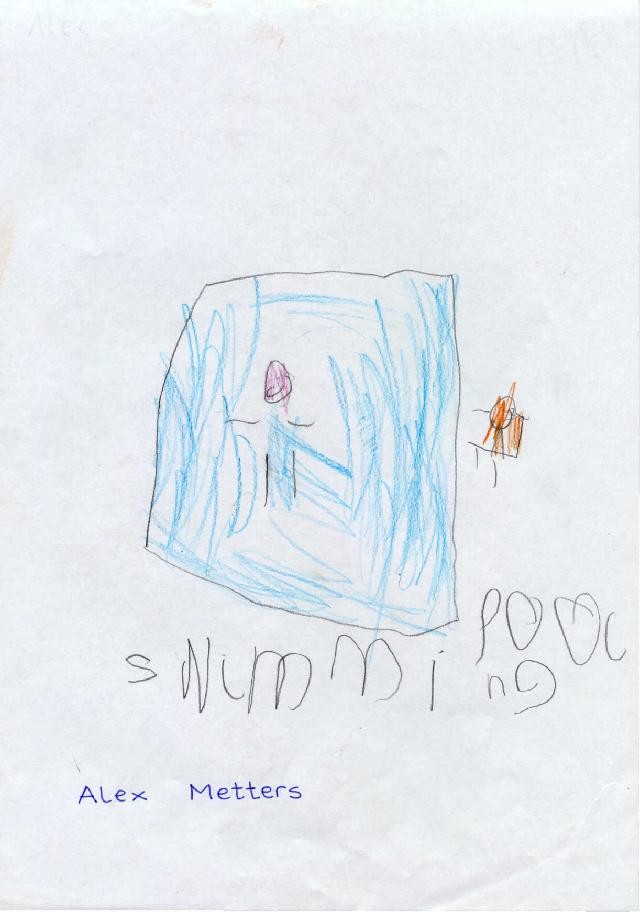 Alex
swimming
pool
Alex Metters